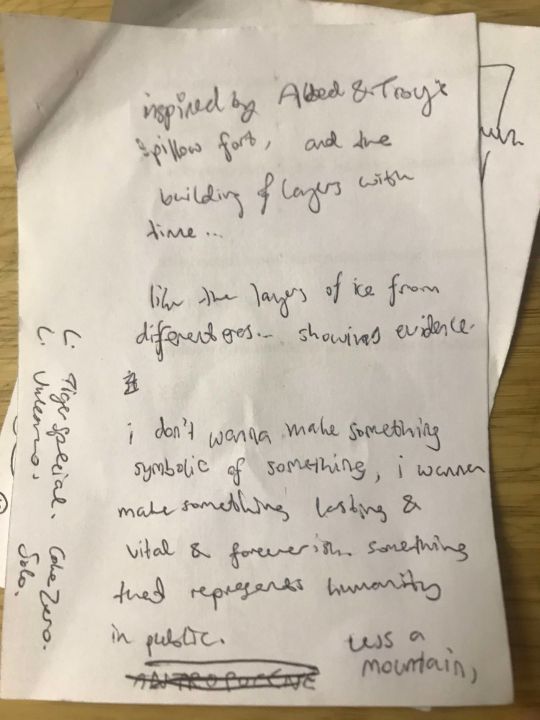 inspired by Abed & Troy's
pillow fort, and the
building of layers with
time...
like the layers of ice from
different eras... showing evidence.
i don't wanna make something
symbolic of something, i wanna
make something lasting &
vital & foreverish. something
that represents humanity
in public.
ANTROPOCENE
less a
mountain,
L: Tiger Special. Coke Zero.
L: Solo.